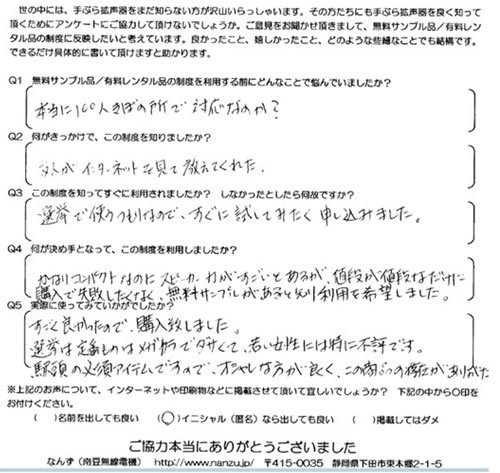 世の中には、手ぶら拡声器をまだ知らない方が沢山いらっしゃいます。その方たちにも手ぶら拡声器を良く知って
頂くためにアンケートにご協力して頂けないでしょうか。ご意見をお聞かせ頂きまして、無料サンプル品/有料レン
タル品の制度に反映したいと考えています。良かったこと、嬉しかったこと、どのような些細なことでも結構です。
できるだけ具体的に書いて頂けますと助かります。
Q1 無料サンプル品/有料レンタル品の制度を利用する前にどんなことで悩んでいましたか?
本当に100人きぼの所で対応なのか?
Q2 何がきっかけで、この制度を知りましたか?
友人がインターネットを見て教えてくれた.
Q3 この制度を知ってすぐに利用されましたか? しなかったとしたら何故ですか?
選挙で使うつもりなので、すぐに試してみたく申し込みました。
Q4 何が決め手となって、この制度を利用しましたか?
かなりコンパクトなのにスピーカー力がすごいとあるが、値段が値段なだけに
購入で失敗したくなく、無料サンプルがあると知り利用を希望しました。
Q5 実際に使ってみていかがでしたか?
すごく良かったので、購入致しました。
選挙は定番ものはメガホンでダサくて、若い女性には特に不評です。
駅頭の必須アイテムですので、オシャレな方が良く、この商品の存在がありがた
※上記のお声について、インターネットや印刷物などに掲載させて頂いて宜しいでしょうか? 下記の中から〇印を
お付けください。
( )名前を出しても良い (〇)イニシャル(匿名)なら出しても良い ( )掲載してはダメ
ご協力本当にありがとうございました
なんず(南豆無線電機) http://www.nanzu.jp/ 〒415-0035 静岡県下田市東本郷2-1-5